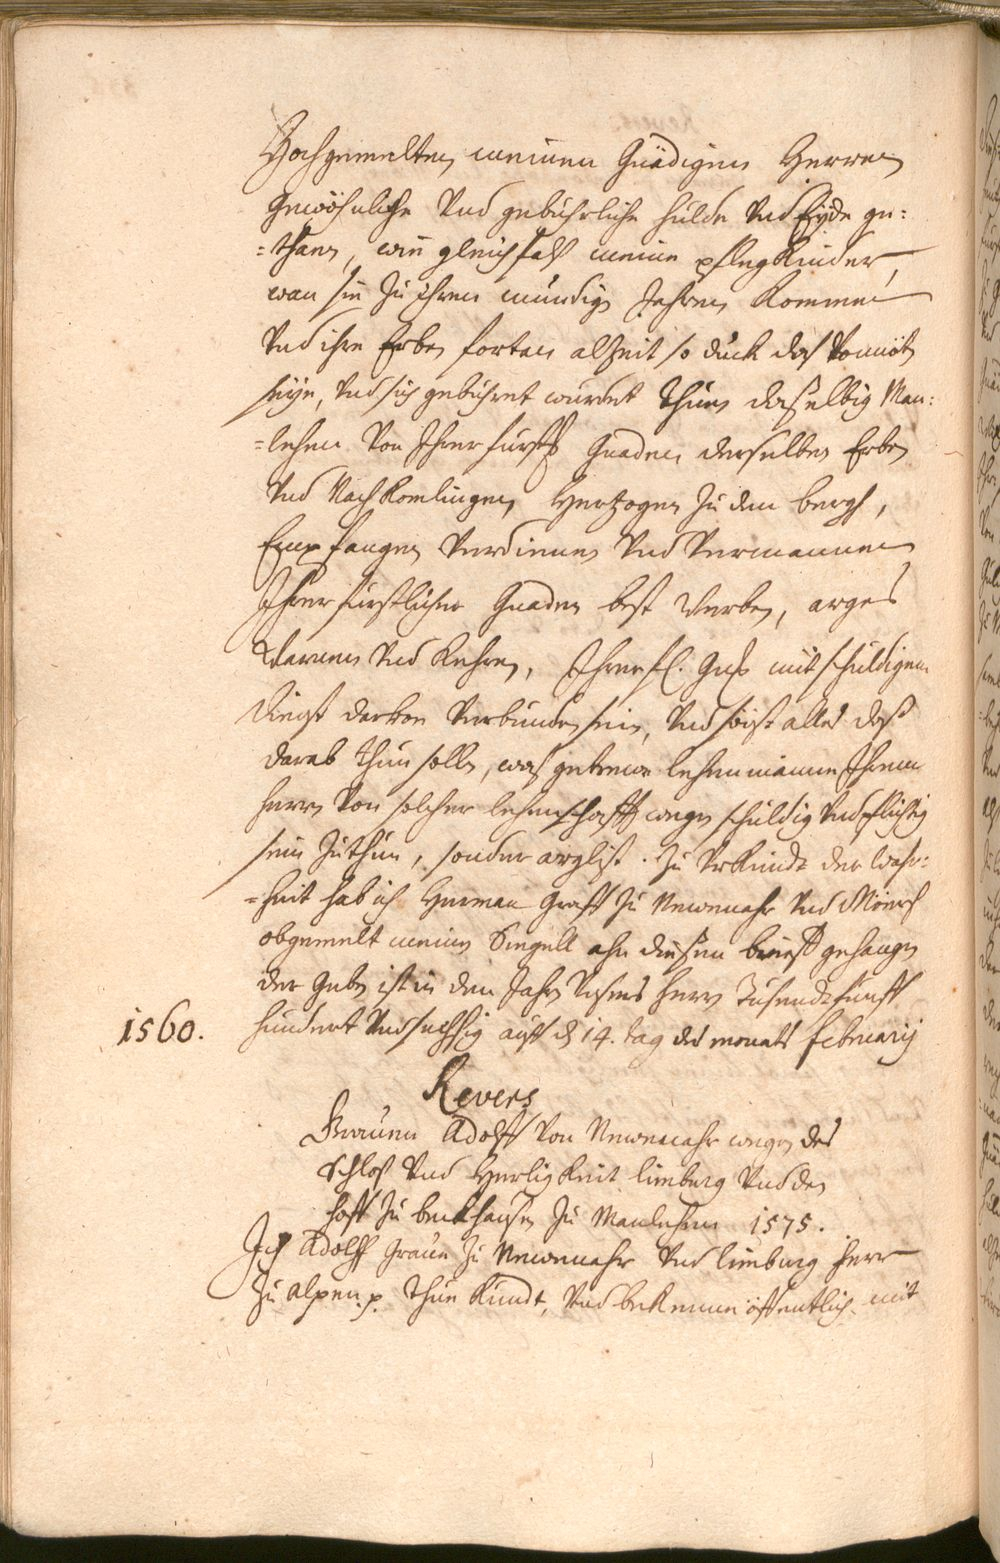 Hochgemelten meinen Gnädigen Herren
gewöhnliche Vnd gebührliche hulde Vnd Eÿde ge:
=than, wie gleichfalß meine pflegKinder,
wan sie zu ihren mündig Jahren Kommen
Vnd ihre Erben fortan alzeit so duck daß Vonnöt
seÿe, Vnd sich gebühret würdet thun, daselbig Man:
=lehen Von Ihrer fürstl Gnaden derselben Erben
Vnd NachKomlingen Hertzogen zu dem bergh,
Empfangen Verdienen Vnd Vermannen
Ihrer fürstlicher Gnaden best Werben, arges
Warnen Vnd Kehren, Ihrer fl. Gnd mit schuldigem
Dienst Verbunden sein, Vnd sonst alles daß
darab thun sollen, waß getrewe lehenmänne Ihrem
herrn Von solcher lehenschafft wegen schuldig Vnd pflichtig
sein zu thun, sonder arglist. Zu VrKundt der War:
=heit hab ich Herman Graff zu Newenahr Vnd Mörß
obgemelt meinen Siegell ahn diesen brieff gehangen
der geben ist in den Jahr Vnsers herrn Tusendt fünff
1560. hundert Vnd sechßig auff d 14. tag des monats februarij
Revers
Grauen Adolff Von Newenahr wegen des
Schloß Vnd HerligKeit limburg Vnd den
hoff zu berkhausen zu Manlehen 1575.
Ich Adolff Graue zu Newenahr Vnd limburg herr
zu alpen p. thun Kundt, Vnd beKenne öffentlich mit